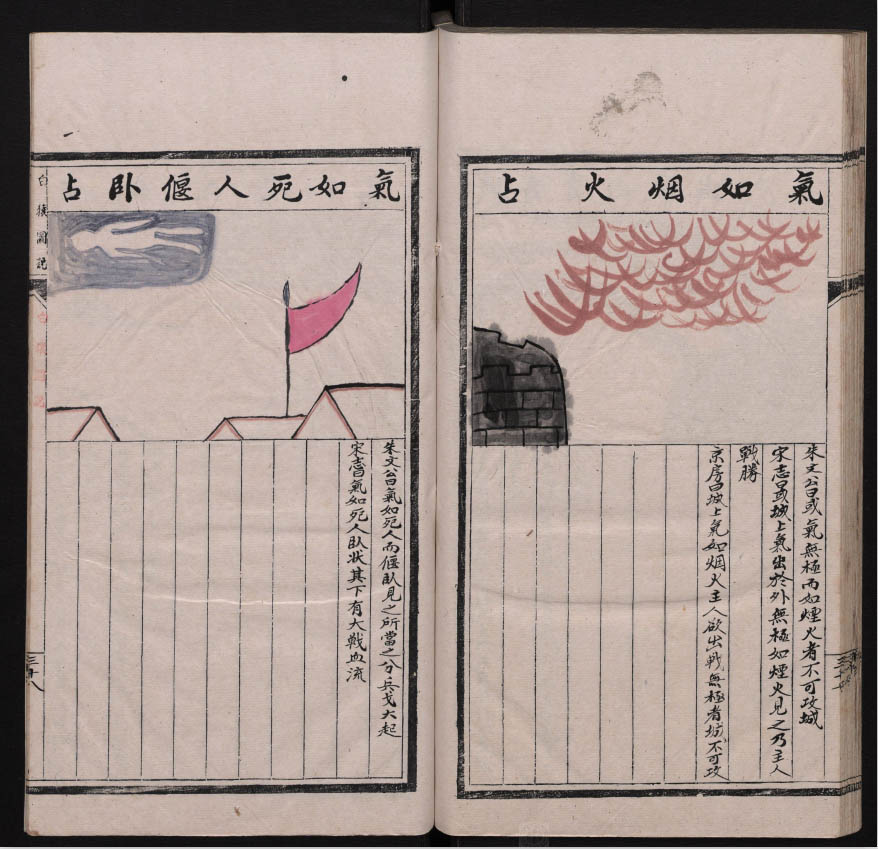 氣如烟火占
朱文公曰或氣無極而如煙火者不可攻城
宋志曰或城上氣出於外無極如煙火見之乃主人
戰勝
京房曰城上氣如烟火主人欲出戰無極者城不可攻
氣如死人偃卧占
朱文公曰氣如死人而偃臥見之所當之分兵戈大起
宋志曰氣如死人臥狀其下有大戰血流
白猿圖說
三十八